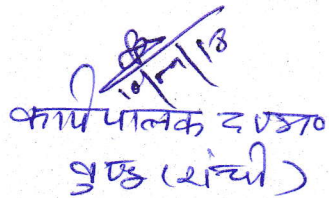 10/7/18
कार्यपालक दण्डा०
बुण्डू (रांची)